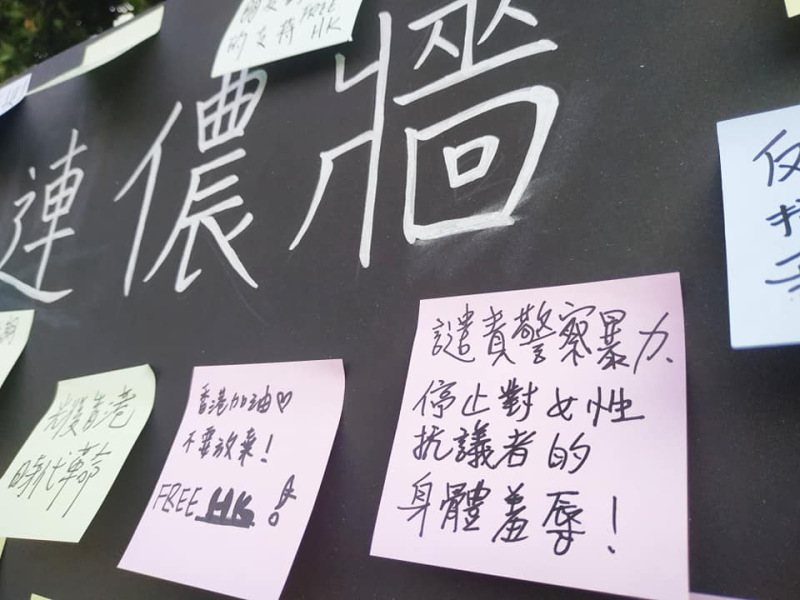 的支持 HK
連儂牆
譴責警察暴力.
停止對女性
抗議者的
身體羞辱!
香港加油♡
不要放棄!
FREE HK!
光復香港
時代革命
反